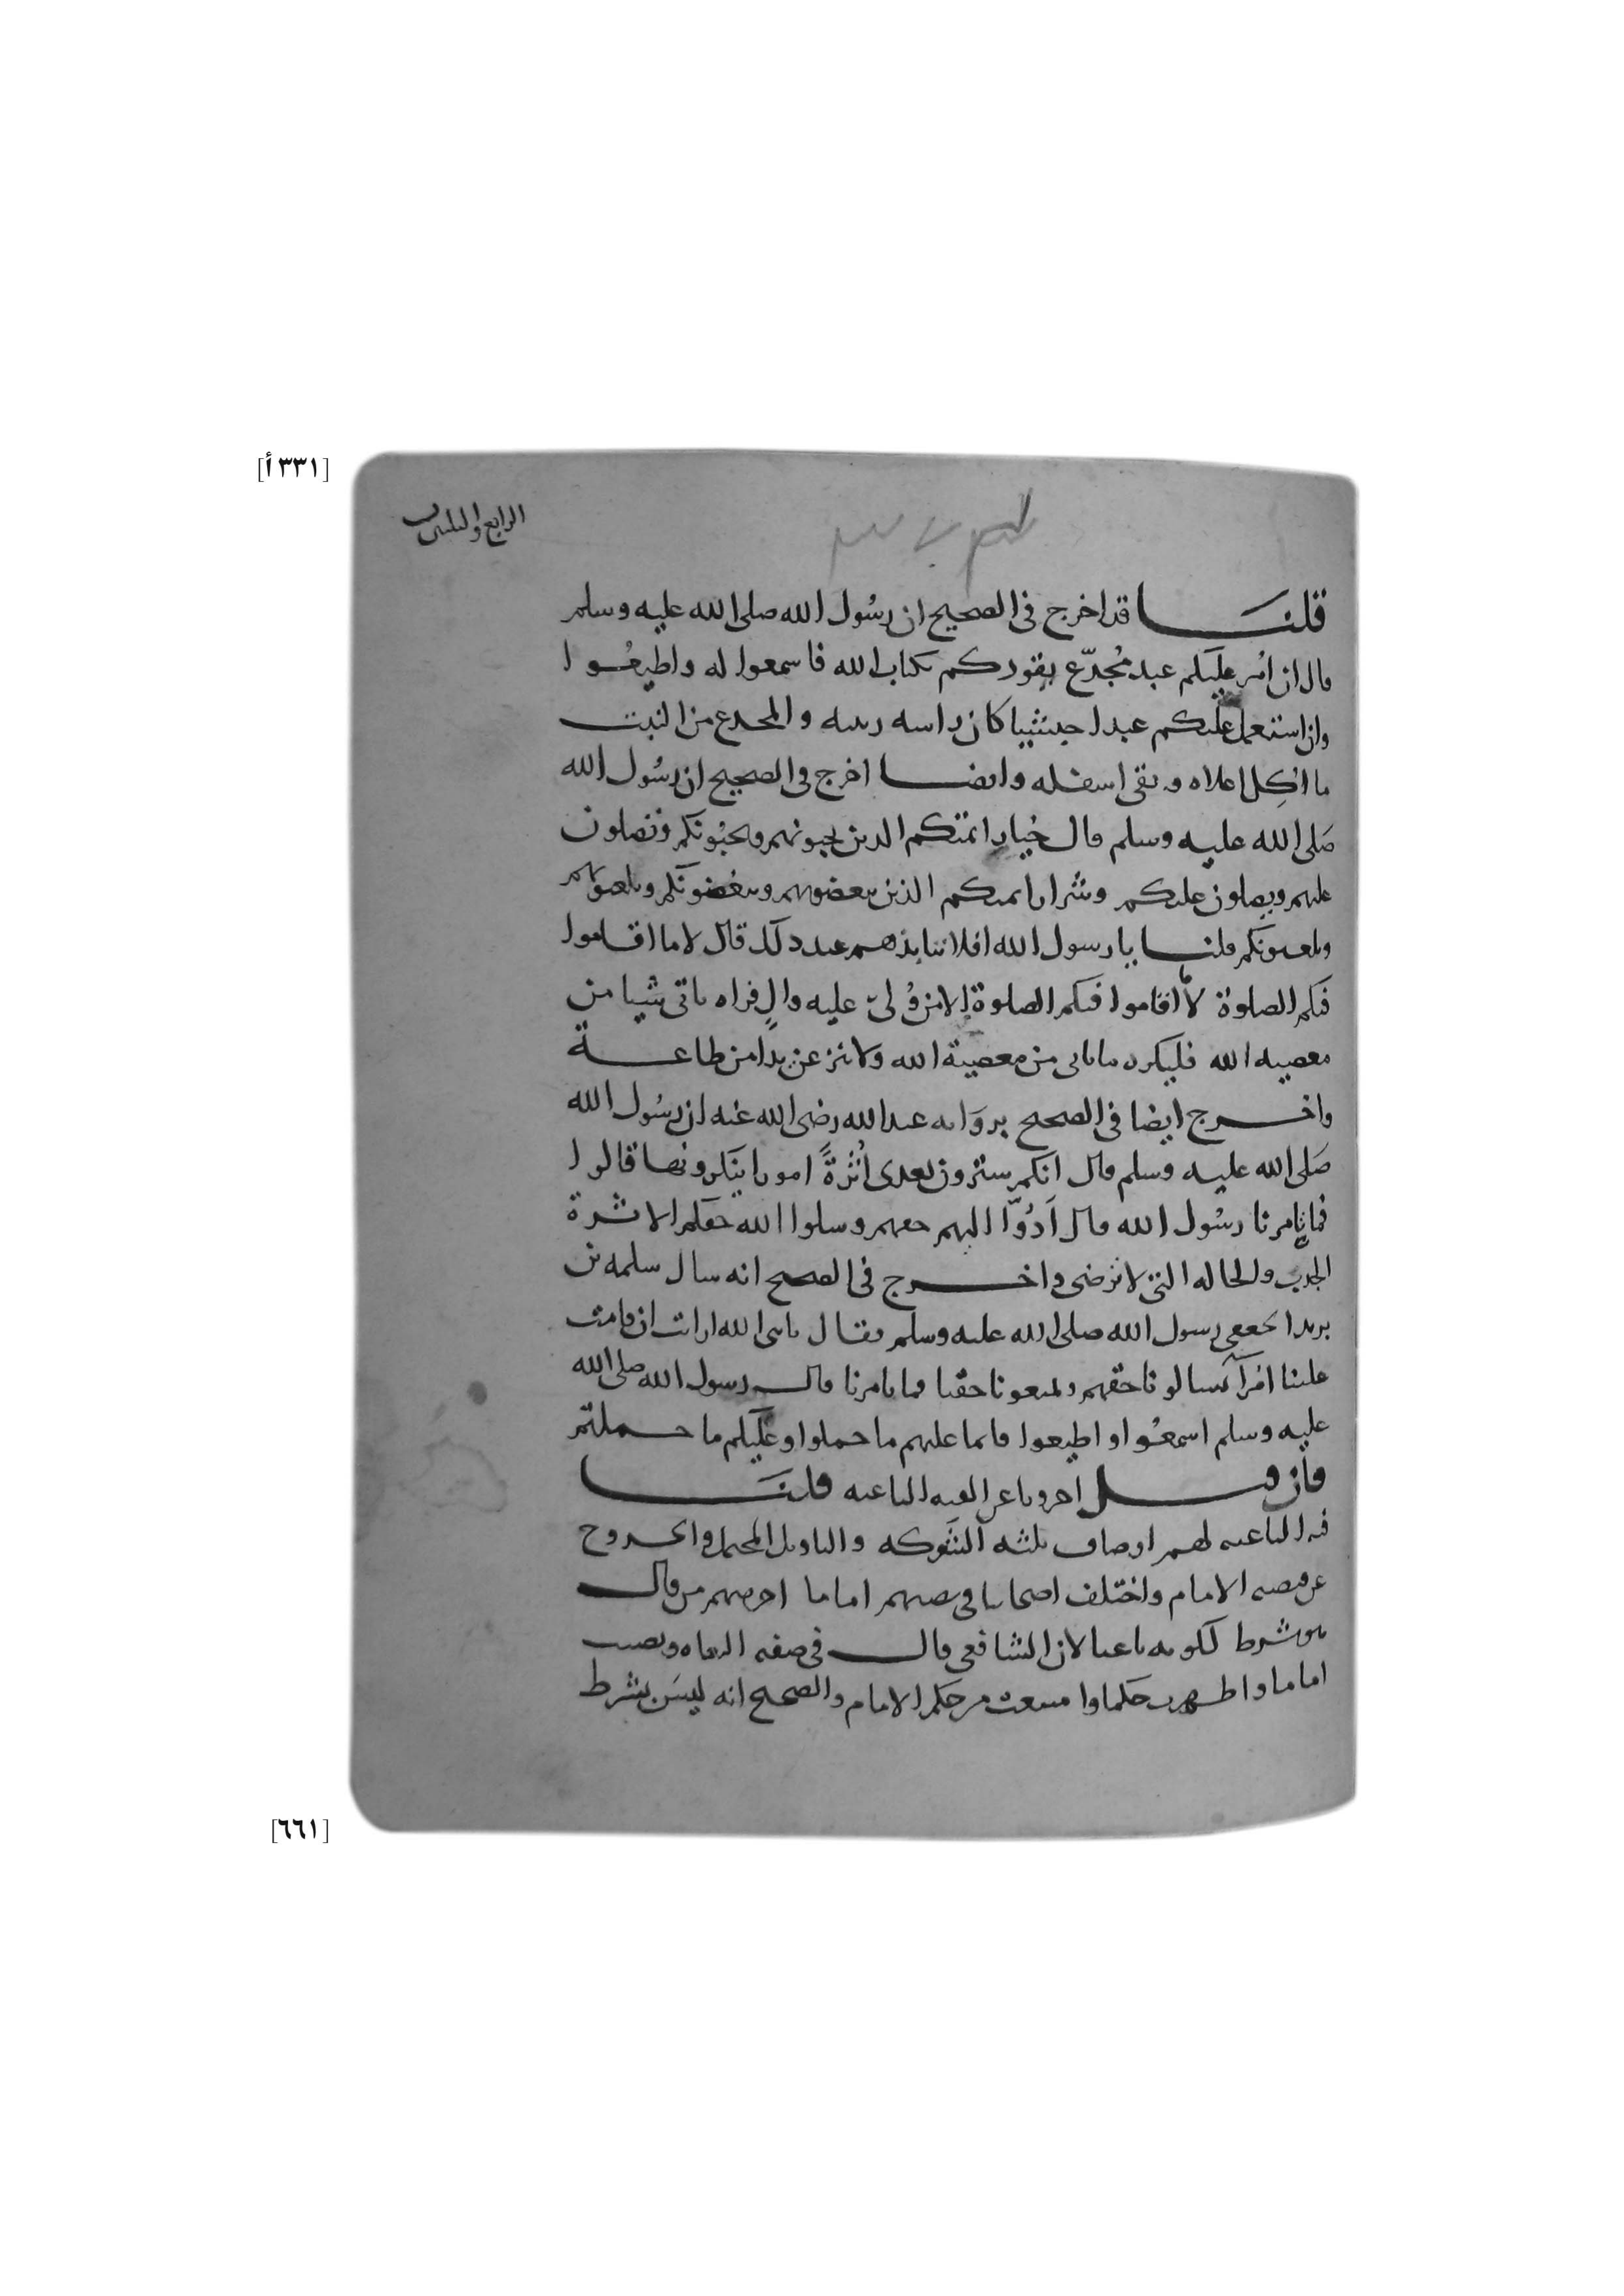 [٣٣١ أ]
الرابع والثلاثين
قلنا قد اخرج فى الصحيح ان رسُول الله صلى الله عليه وسلم
قال ان امُر عليكم عبد مُجدّع يقودكم بكتاب الله فاسمعوا له واطيعُوا
وان استعمل عليكم عبدا حبشيا كان راسه زبيبه والمجدع من النبت
ما اُكِل اعلاه وبقى اسفله وايضا اخرج فى الصحيح ان رسُول الله
صَلى الله عليه وسلم قال خيار ائمتكم الذين تحبونهم ويحبُونكم وتصلون
عليهم ويصلون عليكم وشرار ائمتكم الذين تبغضونهم ويبغضونكم وتلعنونهم
ويلعنونكم قلنا يا رسول الله افلا ننابذهم عند ذلك قال لا ما اقاموا
فيكم الصلوة لا ما اقاموا فيكم الصلوة الا من وُلىّ عليه والٍ فراه ياتى شيا من
معصيه الله فليكره ما ياتى من معصية الله ولا ينزعن يدًا من طاعة
واخرج ايضا فى الصحيح بروَايه عبد الله رضى الله عنه ان رسُول الله
صَلى الله عليه وسلم قال انكم سترون بعدى اُثرةً امورا ينكرونها قالوا
فما تامرنا رسُول الله قال اَدُوّا اليهم حقهم وسلوا الله حقكم الاثرة
الجدب والحاله التى لا ترضى واخرج فى الصحيح انه سال سلمه بن
يزيد الجعفى رسول الله صلى الله عليه وسلم فقال يا نبى الله ارايت ان قامت
علينا امرآ يسالونا حقهم ويمنعونا حقنا فما تامرنا قال رسول الله صلى الله
عليه وسلم اسمعُوا واطيعوا فانما عليهم ما حملوا وعليكم ما حملتم
فان قيل اخبرونا عن الفيه الباغيه قلنا
فيه الباغيه لهم اوصاف ثلثه الشَوكه والتاويل المحتمل والخروج
عن قبضه الامام واختلف اصحابنا فى نصبهم اماما احدهم من قال
هو شرط لكونه باغيا لان الشافعى قال فى صفه البغاه ونصبت
اماما واظهرت حكما وامتنعت من حكم الامام والصحيح انه ليسَ بشرط
[٦٦١]